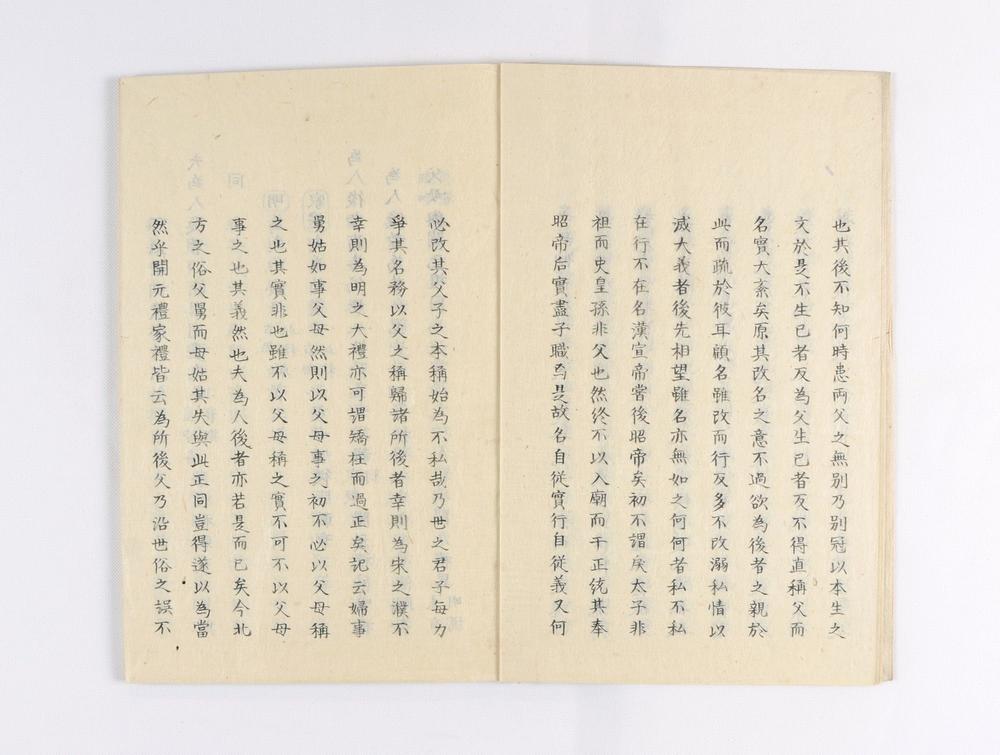 也其後不知何時患両父之無别乃别冠以本生之
文於是不生己者反為父生己者反不得直稱父而
名實大紊矣原其改名之意不過欲為後者之親於
此而疏於彼耳顧名雖改而行反多不改溺私情以
滅大義者後先相望雖名亦無如之何何者私不私
在行不在名漢宣帝甞後昭帝矣初不謂戾太子非
祖而史皇孫非父也然終不以入廟而干正統其奉
昭帝后實盡子職焉是故名自從實行自從義又何
必改其父子之本稱始為不私哉乃世之君子每力
爭其名務以父之稱歸諸所後者幸則為宋之濮不
幸則為明之大禮亦可謂矯枉而過正矣記云婦事
舅姑如事父母然則以父母事之初不必以父母稱
之也其實非也雖不以父母稱之實不可不以父母
事之也其義然也夫為人後者亦若是而已矣今北
方之俗父舅而母姑其失與此正同豈得遂以為當
然乎開元禮家禮皆云為所後父乃沿世俗之誤不